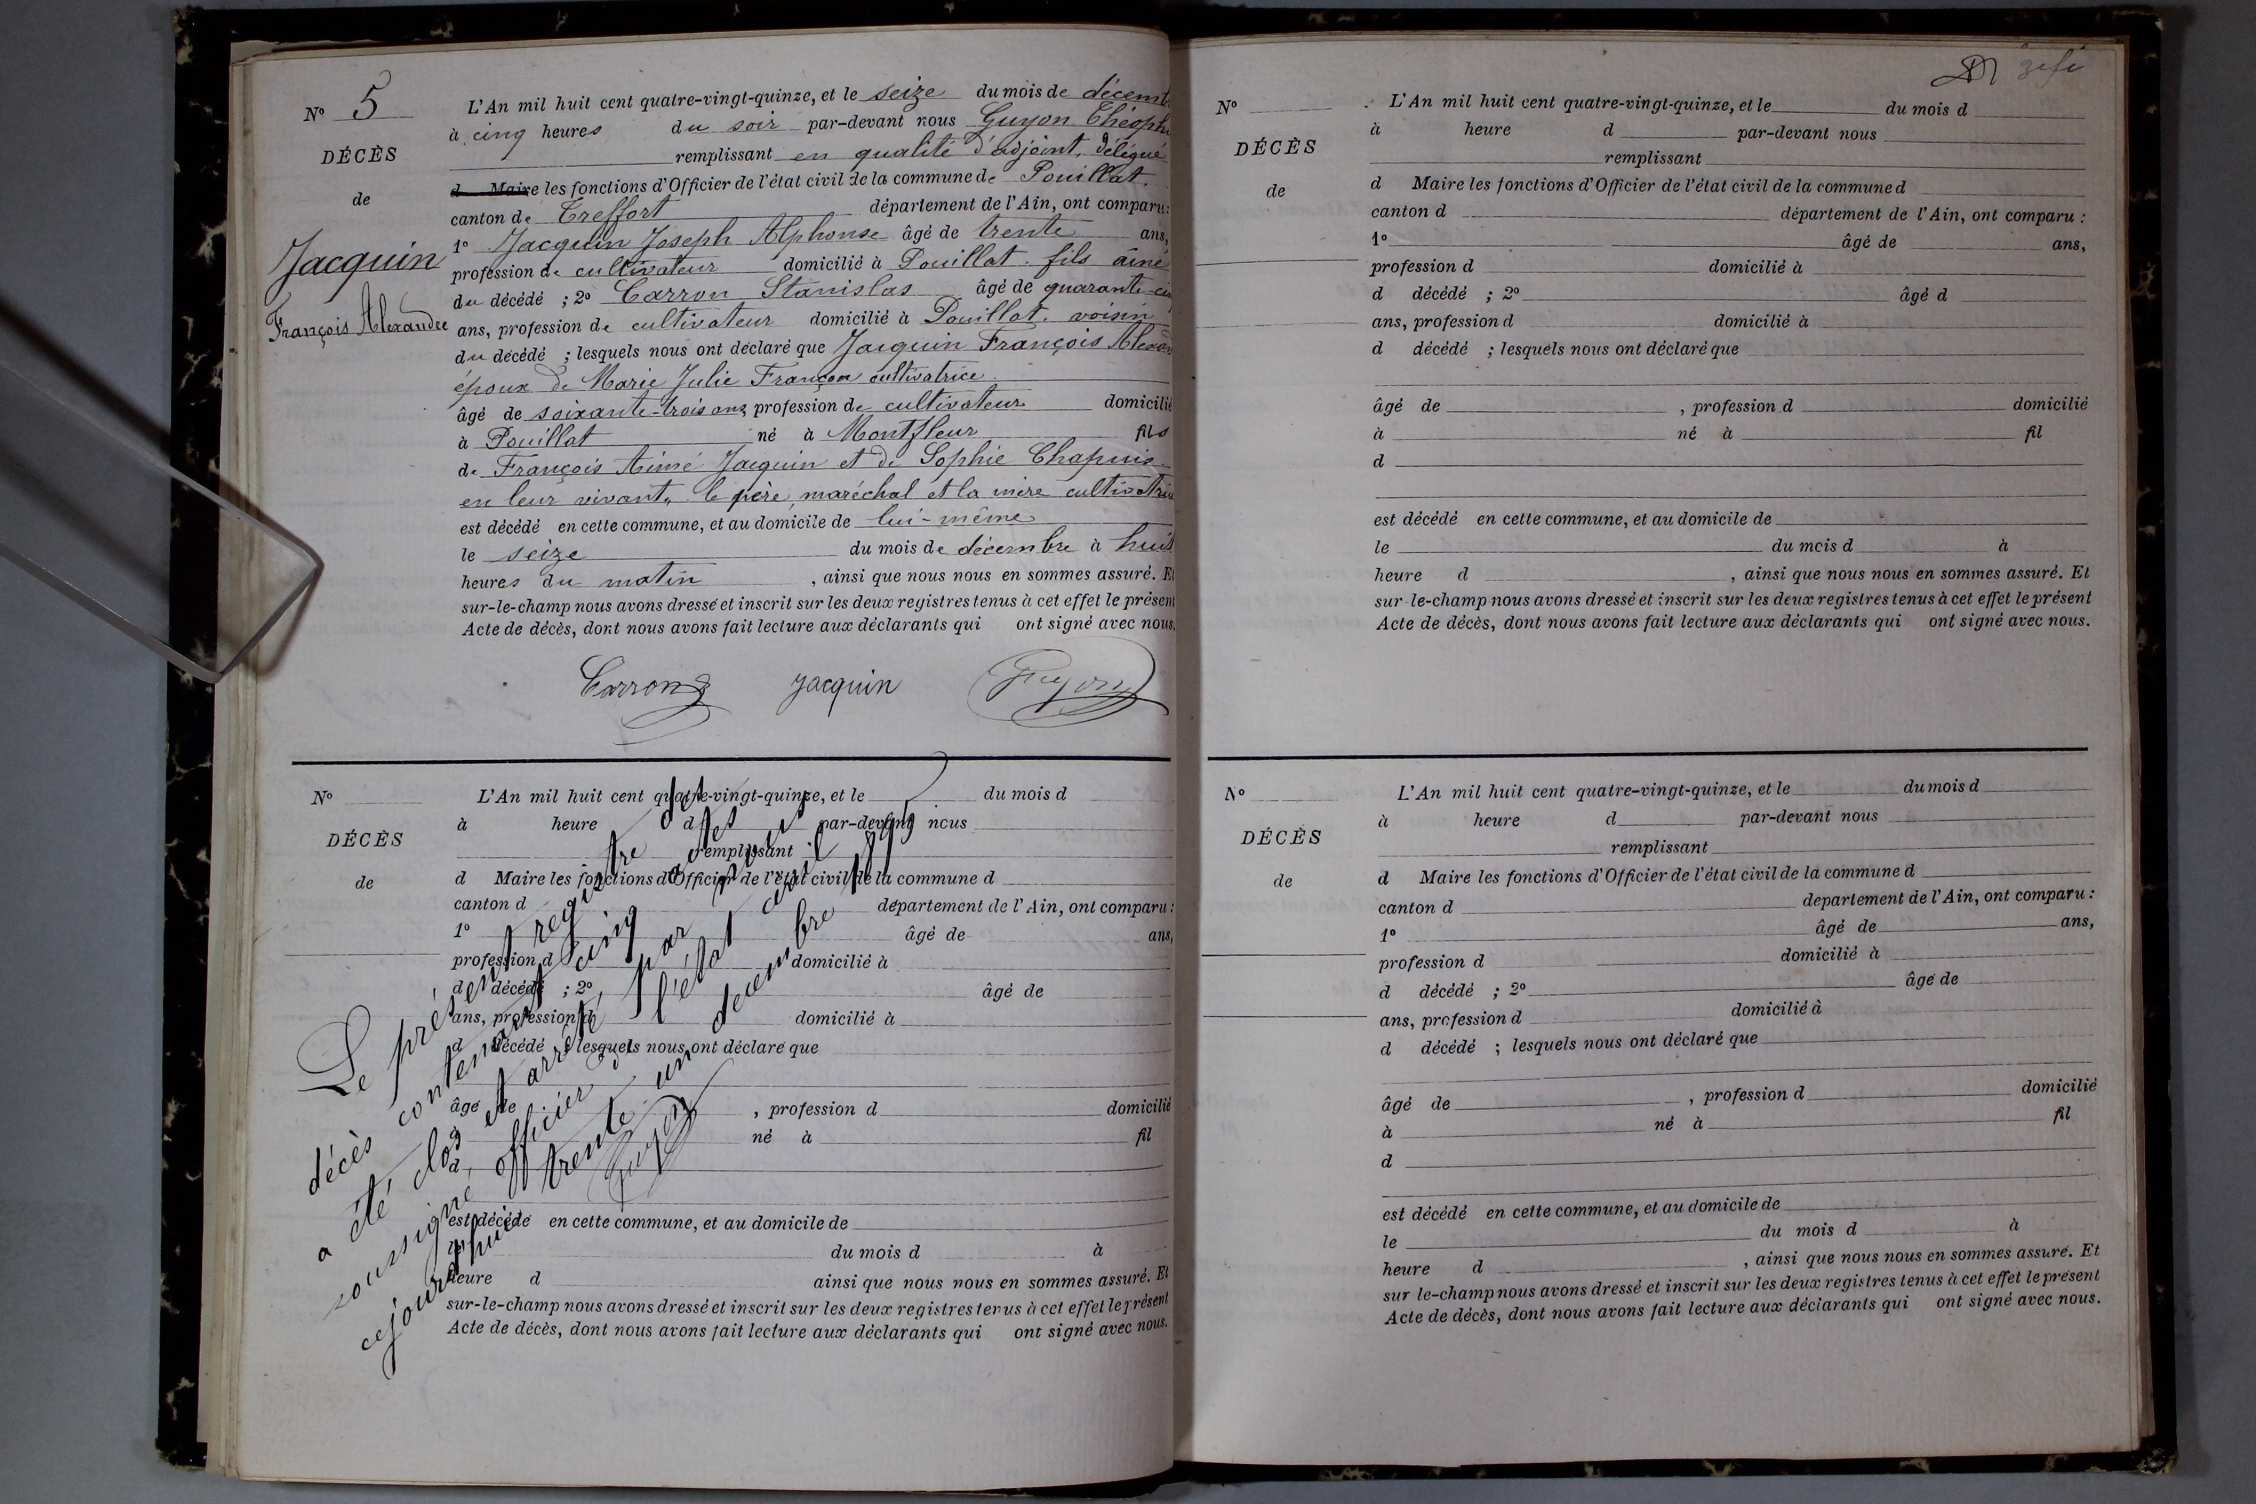 No 5
DÉCÈS
de
Jacquin
François Alexandre
L'An mil huit cent quatre-vingt-quinze, et le seize du mois de décemb
à cinq heures du soir par-devant nous Guyon Théophi
remplissant en qualité d'adjoint, délégué
d Maire les fonctions d'Officier de l'état civil de la commune de Pouillat.
canton de Treffort département de l'Ain, ont comparu:
1o Jacquin Joseph Alphonse âgé de trente ans,
profession de cultivateur domicilié à Pouillat. fils aîné
du décédé ; 2o Carron Stanislas âgé de quarante-cin
ans, profession de cultivateur domicilié à Pouillat. voisin
du décédé ; lesquels nous ont déclaré que Jacquin François Alexand
époux de Marie Julie Françon cultivatrice.
âgé de soixante-trois ans profession de cultivateur domicilié
à Pouillat né à Montfleur fils
de François Aimé Jacquin et de Sophie Chapuis
en leur vivant, le père maréchal et la mère cultivatric
est décédé en cette commune, et au domicile de lui-même
le seize du mois de décembre à huit
heures du matin , ainsi que nous nous en sommes assuré. Et
sur-le-champ nous avons dressé et inscrit sur les deux registres tenus à cet effet le présent
Acte de décès, dont nous avons fait lecture aux déclarants qui ont signé avec nous.
Carron jacquin Guyon
No
DÉCÈS
de
L'An mil huit cent quatre-vingt-quinze, et le du mois d
à heure d par-devant nous
remplissant
d Maire les fonctions d'Officier de l'état civil de la commune d
canton d département de l'Ain, ont comparu :
1o âgé de ans,
profession d domicilié à
d décédé ; 2o âgé de
ans, profession d domicilié à
d décédé lesquels nous ont déclaré que
âgé de , profession d domicilié
à né à fil
d
est décédé en cette commune, et au domicile de
le du mois d à
heure d ainsi que nous nous en sommes assuré. Et
sur-le-champ nous avons dressé et inscrit sur les deux registres tenus à cet effet le présent
Acte de décès, dont nous avons fait lecture aux déclarants qui ont signé avec nous.
Le présent registre des
décès contenant cinq actes
a été clos et arrêté par nous
soussigné, officier de l'état civil
cejourd'hui trente un décembre
Guyon
No
DÉCÈS
de
L'An mil huit cent quatre-vingt-quinze, et le du mois d
à heure d par-devant nous
remplissant
d Maire les fonctions d'Officier de l'état civil de la commune d
canton d département de l'Ain, ont comparu :
1o âgé de ans,
profession d domicilié à
d décédé ; 2o âgé d
ans, profession d domicilié à
d décédé ; lesquels nous ont déclaré que
âgé de , profession d domicilié
à né à fil
d
est décédé en cette commune, et au domicile de
le du mois d à
heure d , ainsi que nous nous en sommes assuré. Et
sur-le-champ nous avons dressé et inscrit sur les deux registres tenus à cet effet le présent
Acte de décès, dont nous avons fait lecture aux déclarants qui ont signé avec nous.
No
DÉCÈS
de
L'An mil huit cent quatre-vingt-quinze, et le du mois d
à heure d par-devant nous
remplissant
d Maire les fonctions d'Officier de l'état civil de la commune d
canton d departement de l'Ain, ont comparu :
1o âgé de ans,
profession d domicilié à
d décédé ; 2o âgé de
ans, profession d domicilié à
d décédé ; lesquels nous ont déclaré que
âgé de , profession d domicilié
à né à fil
d
est décédé en cette commune, et au domicile de
le du mois d à
heure d , ainsi que nous nous en sommes assuré. Et
sur le-champ nous avons dressé et inscrit sur les deux registres tenus à cet effet le présent
Acte de décès, dont nous avons fait lecture aux déclarants qui ont signé avec nous.